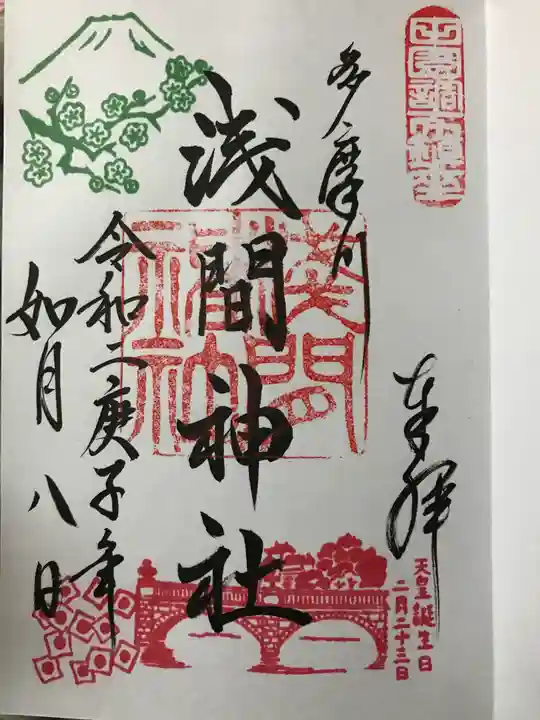 田園調布鎮座
奉拝
天皇誕生日
二月二十三日
多摩川
浅間神社
令和二庚子年
如月八日